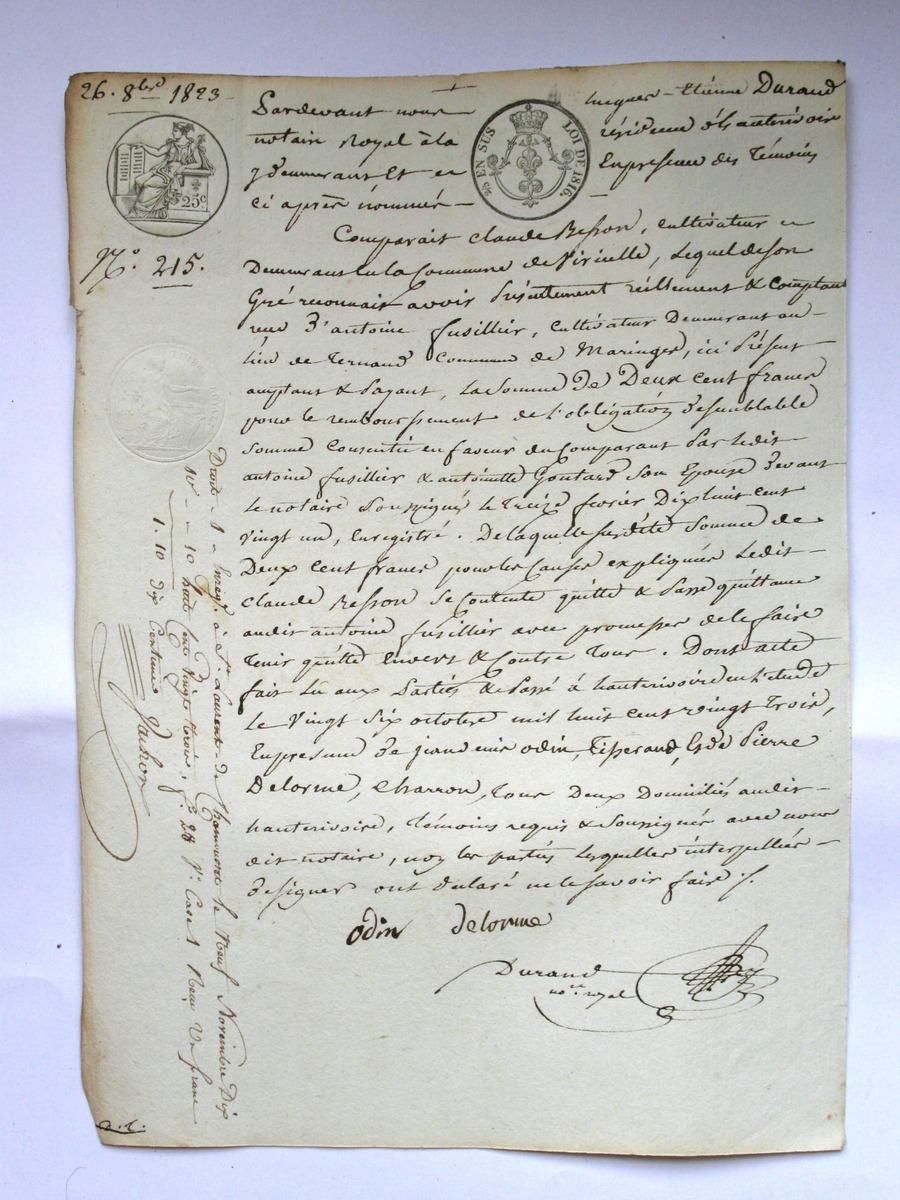 26. 8bre 1823
Pardevant nous hugues-Etienne Durand
notaire Royal à la résidence d'hauterivoire
y demeurant Et en En présence des Témoins
ci après nommés
25c
EN SUS LOI DE 1816.
No. 215.
Comparait Claude Besson, cultivateur
Demeurant en la Commune de Viricelle, Lequel de son
Gré reconnait avoir Présentement réellement & comptant
reçu d'antoine fusillier, cultivateur Demeurant au
lieu de Ternand Commune de Maringes, ici Présent
acceptant & Payant, La Somme de Deux Cent francs
pour le remboursement de l'obligation de semblable
Somme Consentie en faveur du Comparant Par Ledit
antoine fusillier & antoinette Goutard Son Epouze devant
Le notaire Soussigné le Treize fevrier Dix huit cent
Vingt un, Enregistré. De laquelle susdite Somme de
Deux cent francs pour les Causes expliquées Ledit
Claude Besson Se Contente quitte & Passe quittance
audit antoine fusillier avec promesse de le faire
Tenir quitte Envers & Contre Tous. Dont acte
fait Lu aux Parties & Passé à hauterivoire en l'etude
Le Vingt Six octobre mil huit cent vingt Trois,
En présence de jean denis odin, Tisserand, & de Pierre
Delorme, Charron, Tous Deux Domiciliés audit
hauterivoire, Témoins requis & Soussignés avec nous
dit notaire, non les parties Lesquelles interpellées
de signer ont déclaré ne le savoir faire ./.
odin delorme
Durand
nore royal
Droit 1 " Enregé. à St. Laurent de Chamousset le Neuf Novembre Dix
10e " 10 huit Cent Vingt trois, fo. 28 Vo. Case 1 Reçu Un franc
1. 10 dix Centimes